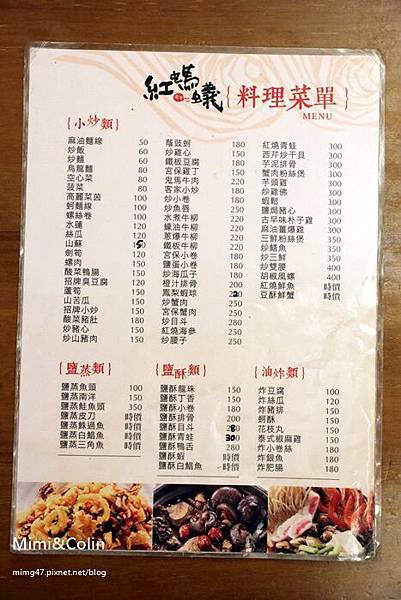 紅螞蟻
{料理菜單}
MENU
{小炒類}
麻油麵線 50
炒飯 60
炒麵 60
烏龍麵 80
空心菜 80
菠菜 80
高麗菜 100
蚵麵線 100
螺絲卷 100
水蓮 120
絲瓜 120
山蘇 150
劍筍 150
螺肉 150
酸菜鴨腸 150
招牌臭豆腐 150
蘆筍 150
山苦瓜 150
招牌小炒 150
酸菜豬肚 180
炒豬心 150
炒山豬肉 150
蔭豉蚵 180
炒雞心 150
鐵板豆腐 180
宮保雞丁 150
鬼馬牛肉 220
客家小炒 180
炒小卷 180
炒魚唇 250
水煮牛柳 220
蠔油牛柳 220
蔥爆牛柳 220
鐵板牛柳 220
宮保小卷 180
鹽蛋小卷 180
炒海瓜子 180
橙汁排骨 200
鳳梨蝦球 220
炒蟹肉 250
宮保蟹肉 250
炒目斗 280
紅燒海參 250
炒腰子 250
紅燒青蛙 300
西芹炒干貝 300
芋泥排骨 300
蟹肉粉絲煲 300
芋頭雞 300
炒雞佛 300
蝦鬆 300
鹽焗豬心 300
古早味朴子雞 300
麻油薑爆雞 300
三鮮粉絲煲 350
炒鱔魚 350
炒三鮮 350
炒雙腰 400
胡椒風螺 400
紅燒鮮魚 時價
豆酥鮮蟹 時價
{鹽蒸類}
鹽蒸魚頭 100
鹽蒸南洋 150
鹽蒸鮭魚頭 350
鹽蒸皮刀 時價
鹽蒸鮢過魚 時價
鹽蒸白鯧魚 時價
鹽蒸三角魚 時價
{鹽酥類}
鹽酥龍珠 150
鹽酥丁香 150
鹽酥小卷 180
鹽酥排骨 200
鹽酥目斗 280
鹽酥青蛙 300
鹽酥鴨舌 280
鹽酥蝦 時價
鹽酥白鯧魚 時價
{油炸類}
炸豆腐 100
炸絲瓜 120
炸豬排 150
蚵酥 150
花枝丸 150
泰式椒麻雞 150
炸小卷絲 150
炸銀魚 180
炸肥腸 180
Mimi&Colin
mimg47.pixnet.net/blog